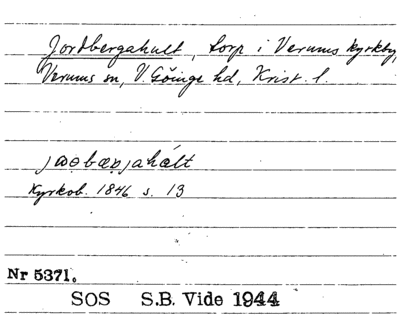 Jordbergahult, torp i Verums kyrkby,
Verums sn, V. Göinge hd, Krist. l.
jωǝbæɒjahált
Kyrkob. 1846 s. 13
Nr 5371.
SOS S.B. Vide 1944